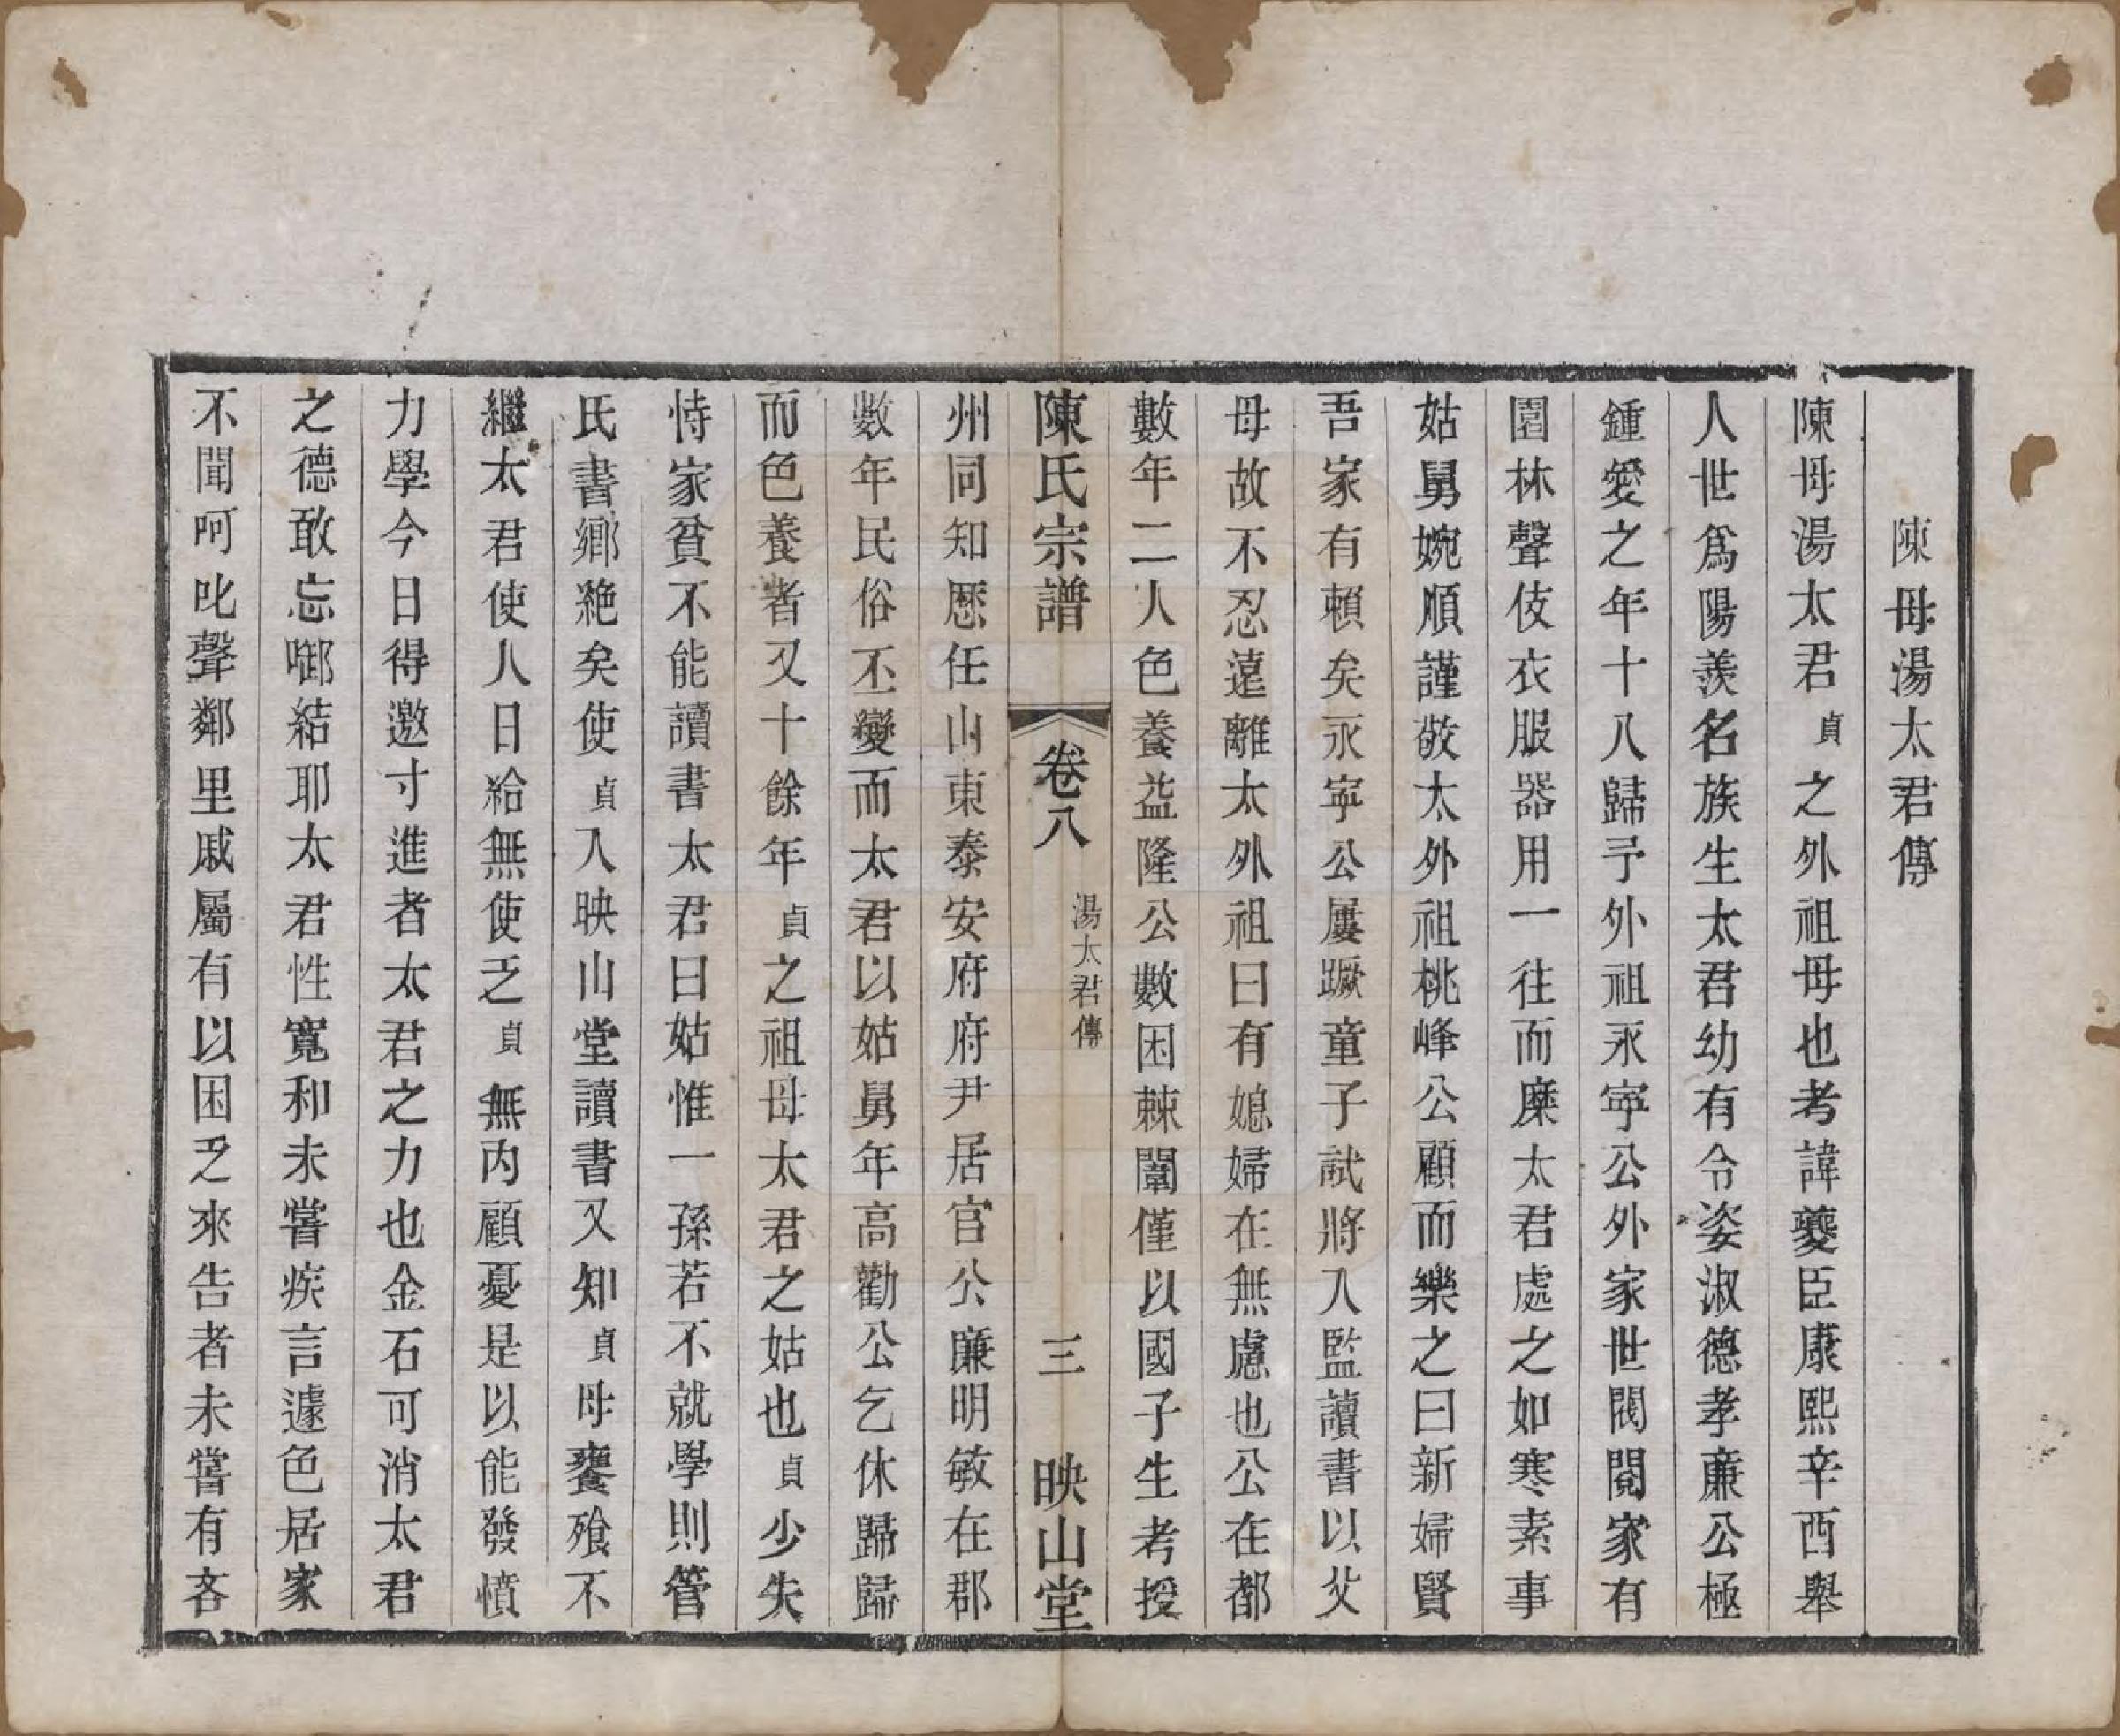 陳母湯太君傳
陳母湯太君貞之外祖母也考諱夔臣康熙辛酉舉
人世爲陽羨名族生太君幼有令姿淑德孝亷公極
鍾愛之年十八歸予外祖永寧公外家世閥閱家有
園林聲伎衣服器用一往而糜太君處之如寒素事
姑舅婉順謹敬太外祖桃峰公顧而樂之曰新婦賢
吾家有賴矣永寧公屢蹶童子試將入監讀書以父
母故不忍遠離太外祖曰有媳婦在無慮也公在都
數年二人色養益隆公數困棘闈僅以國子生考授
陳氏宗譜
卷八
湯太君傳
三
映山堂
州同知歷任山東泰安府府尹居官公廉明敏在郡
數年民俗丕變而太君以姑舅年高勸公乞休歸歸
而色養者又十餘年貞之祖母太君之姑也貞少失
恃家貧不能讀書太君曰姑惟一孫若不就學則管
氏書鄉絶矣使貞入映山堂讀書又知貞母饔飱不
繼太君使人日給無使乏貞無内顧憂是以能發憤
力學今日得邀寸進者太君之力也金石可消太君
之德敢忘啣結耶太君性寬和未嘗疾言遽色居家
不聞呵叱聲鄰里戚屬有以困乏來告者未嘗有吝